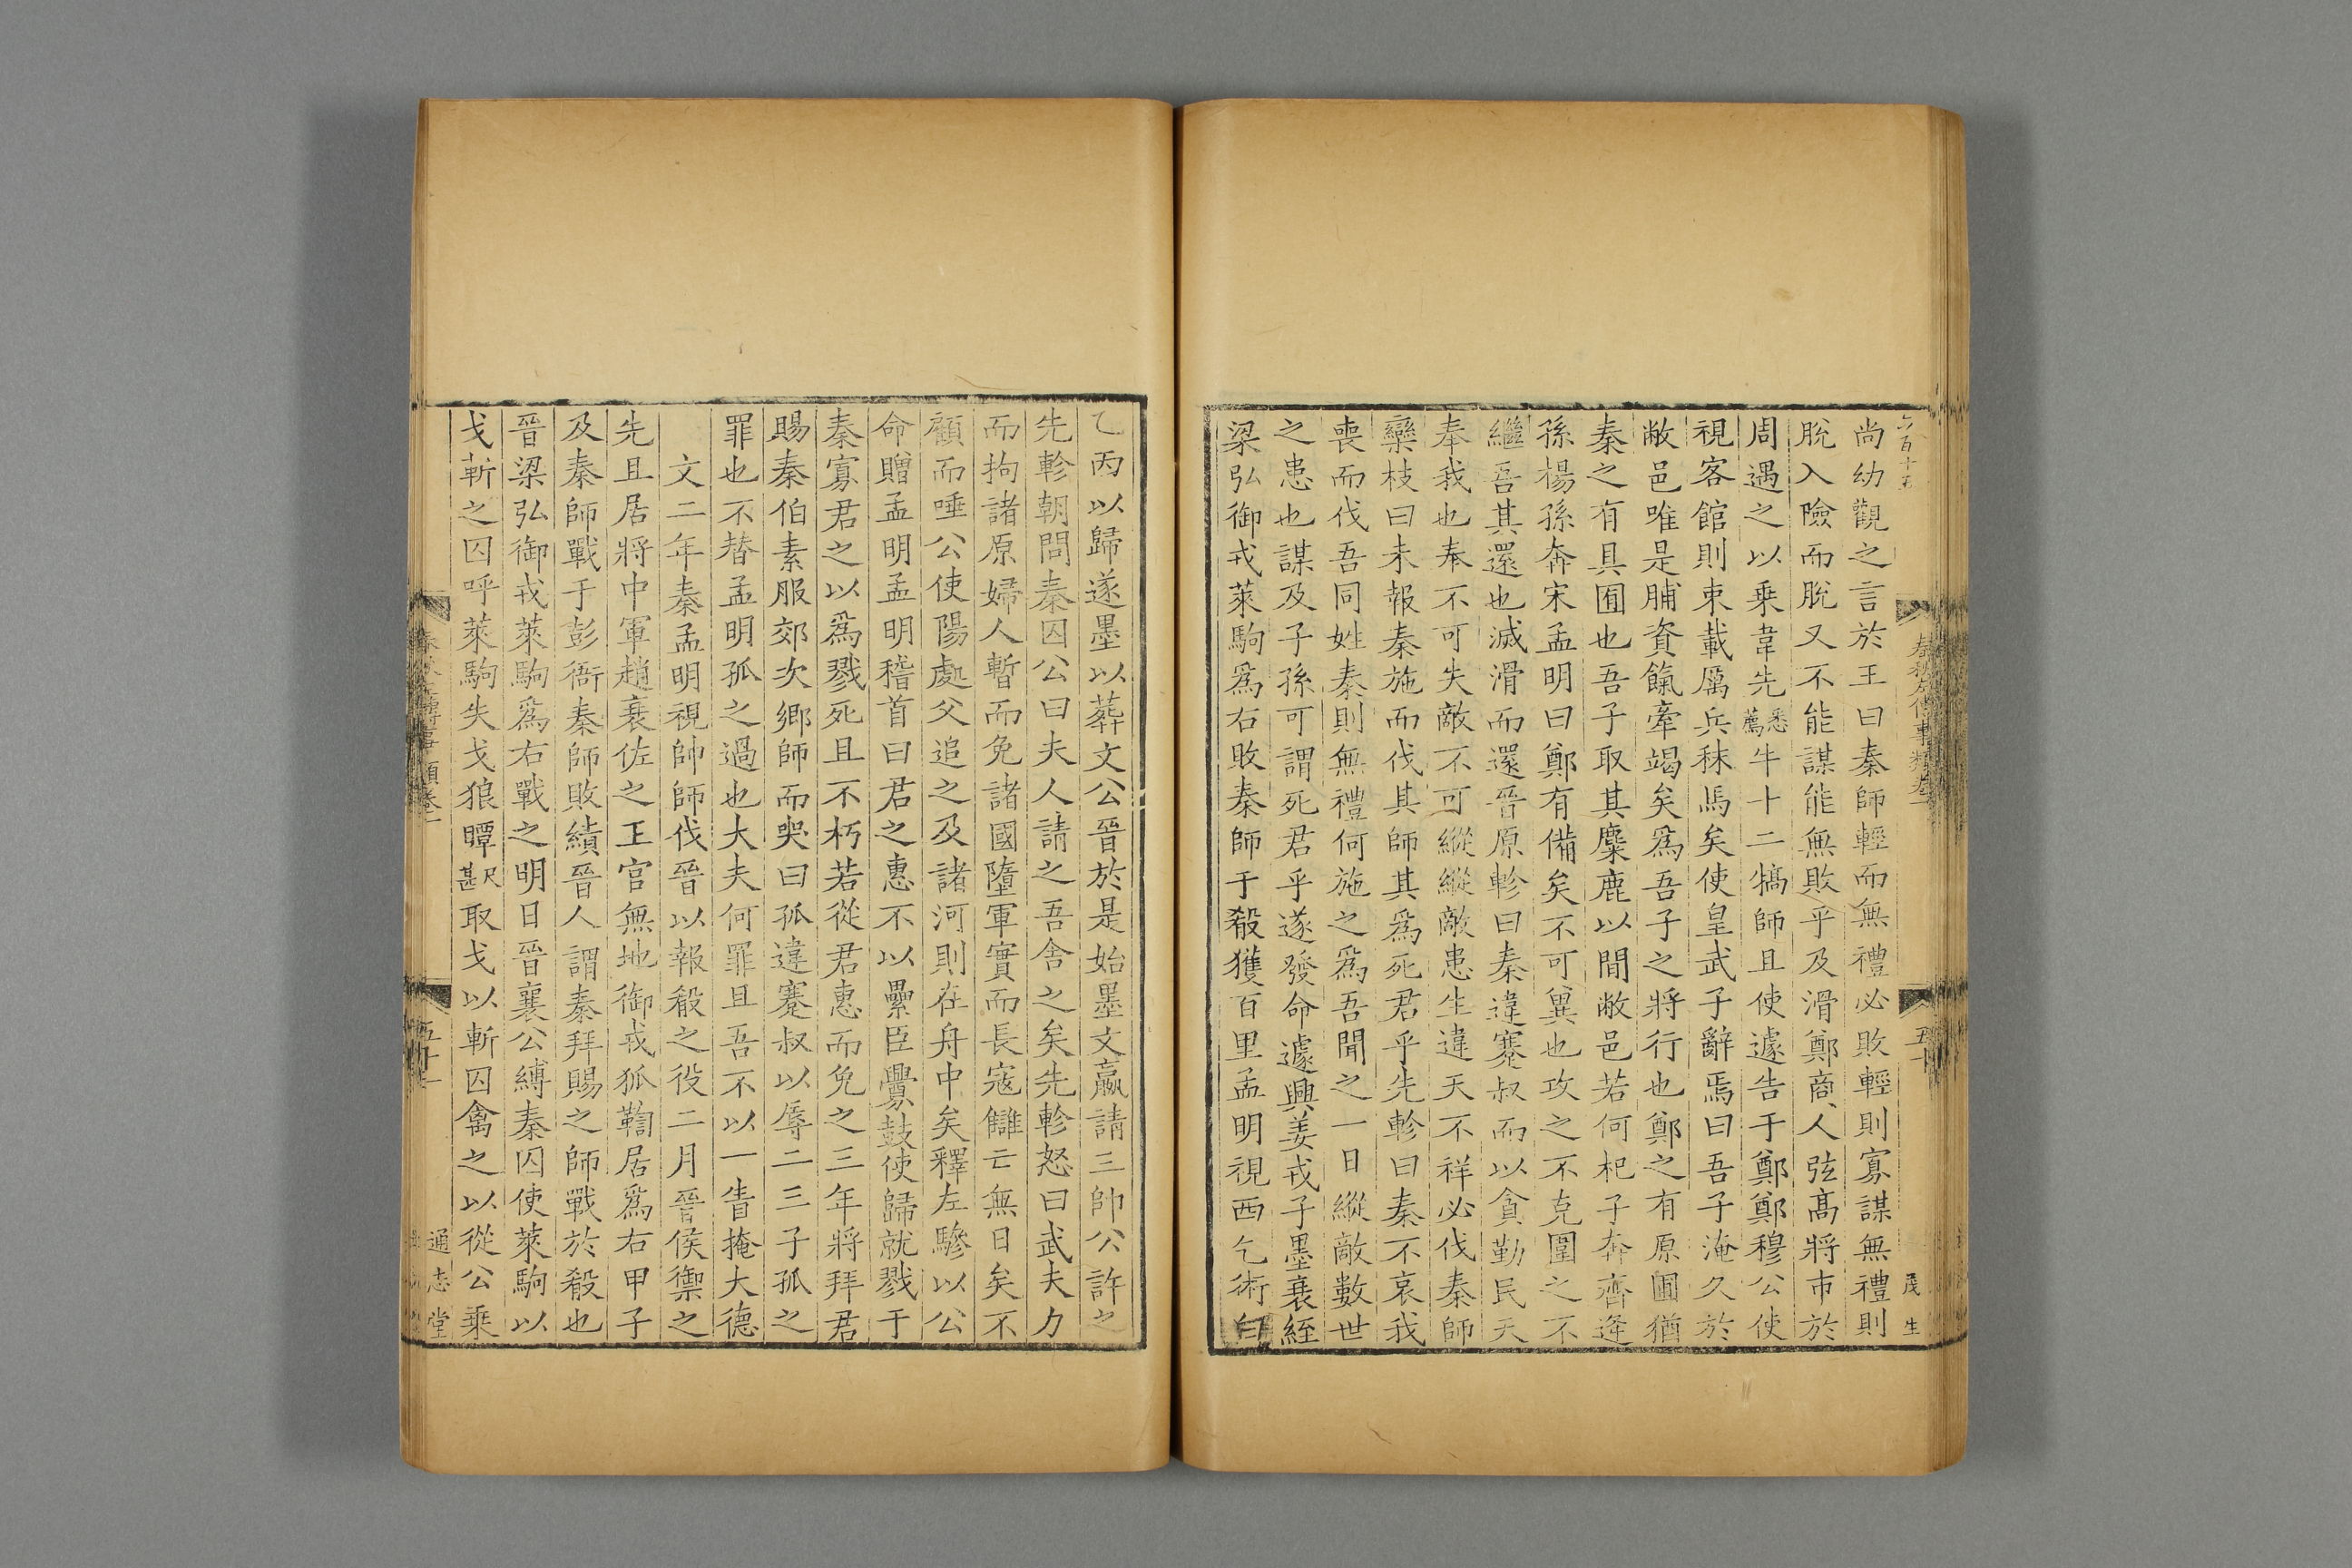 六百十五
春秋左傳事類卷一
五十
茂生
尚幼觀之言於王曰秦師輕而無禮必敗輕則寡謀無禮則
脫入險而脫又不能謀能無敗乎及滑鄭商人弦高將市於
周遇之以乗韋先悉薦牛十二犒師且使遽告于鄭鄭穆公使
視客館則束載厲兵秣馬矣使皇武子辭焉曰吾子淹久於
敝邑唯是脯資餼牽竭矣爲吾子之將行也鄭之有原圃猶
秦之有具囿也吾子取其麋鹿以閒敝邑若何杞子奔齊逄
孫楊孫奔宋孟明曰鄭有備矣不可兾也攻之不克圍之不
繼吾其還也滅滑而還晉原軫曰秦違蹇叔而以貪勤民天
奉我也奉不可失敵不可縱縱敵患生違天不祥必伐秦師
欒枝曰未報秦施而伐其師其爲死君乎先軫曰秦不哀我
喪而伐吾同姓秦則無禮何施之爲吾聞之一日縱敵數世
之患也謀及子孫可謂死君乎遂發命遽興姜戎子墨衰絰
梁弘御戎萊駒爲右敗秦師于殽獲百里孟明視西乞術白
乙丙以歸遂墨以葬文公晉於是始墨文嬴請三帥公許之
先軫朝問秦囚公曰夫人請之吾舍之矣先軫怒曰武夫力
而拘諸原婦人暫而免諸國墮軍實而長寇讎亡無日矣不
顧而唾公使陽處父追之及諸河則在舟中矣釋左驂以公
命贈孟明孟明稽首曰君之惠不以纍臣釁鼓使歸就戮于
秦寡君之以爲戮死且不朽若從君惠而免之三年將拜君
賜秦伯素服郊次鄉師而哭曰孤違蹇叔以辱二三子孤之
罪也不替孟明孤之過也大夫何罪且吾不以一眚掩大德
文二年秦孟明視帥師伐晉以報殽之役二月晉侯禦之
先且居將中軍趙衰佐之王官無地御戎狐鞫居爲右甲子
及秦師戰于彭衙秦師敗績晉人謂秦拜賜之師戰於殽也
晉梁弘御戎萊駒爲右戰之明日晉襄公縛秦囚使萊駒以
戈斬之囚呼萊駒失戈狼瞫尺甚取戈以斬囚禽之以從公乗
五十一
通志堂